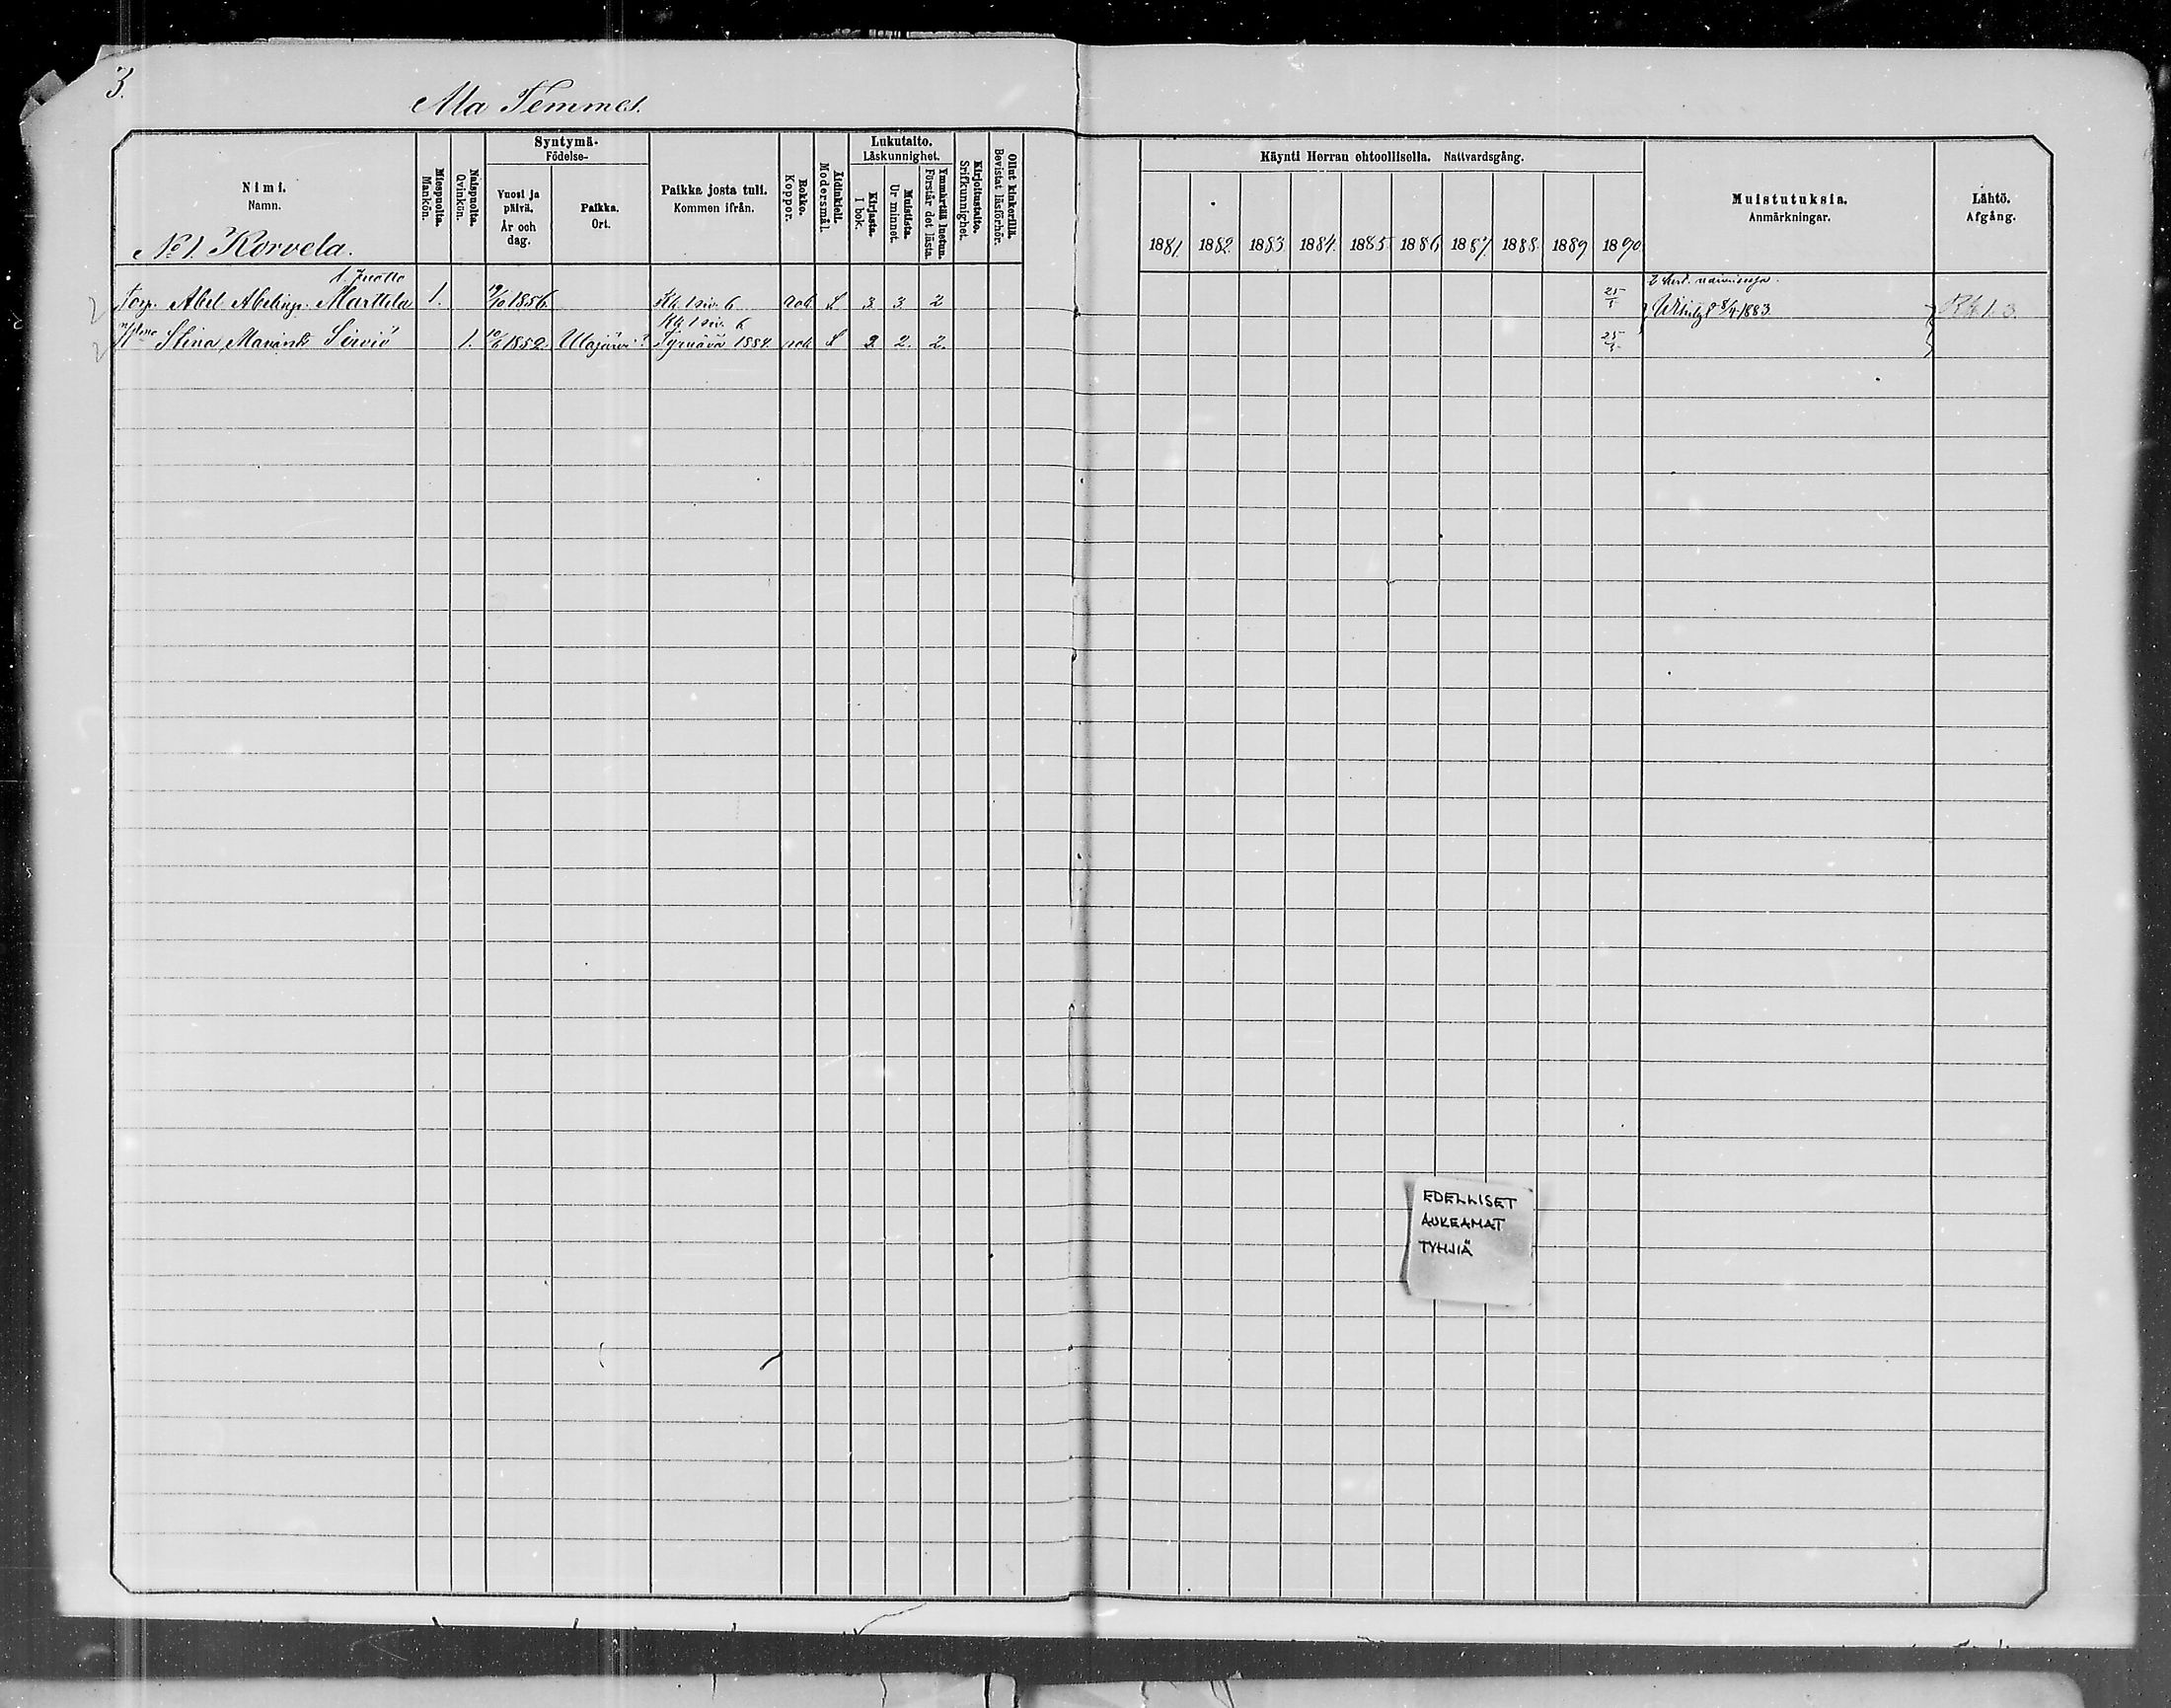 3.
Ala Temmes.
Nimi.
Namn.
No 1. Korvela.
Miespuolta.
Mankön.
Naispuolta.
Qvinkön.
Syntymä-
Födelse-
Vuosi ja
päivä.
År och
dag.
Paikka.
Ort.
Paikka josta tuli.
Kommen ifrån.
Rokko.
Koppor.
Äidinkieli.
Modersmål.
Lukutaito.
Läskunnighet.
Kirjasta.
I bok.
Muistista.
Ur minnet.
Ymmärtää luetun.
Förstår det lästa.
Kirjoitustaito.
Srifkunnighet.
Ollut kinkerillä.
Bevistat läsförhör.
Käynti Herran ehtoollisella. Nattvardsgång.
1881. 1882. 1883 1884. 1885 1886 1887. 1888. 1889 1890
Muistutuksia.
Anmärkningar.
Lähtö.
Afgång.
Torp. Abel Abelinp. Marttila 1. 19/10 1856. Kk. 1 siv. 6 rok. S 3 3 2 25/5
8/4 1883. Rk 1. 3.
Kk 1 siv. 6
Stina Sirviö 1. 1852. Tyrnävä 1884 rok S 2 2. 2. 25/5
EDELLISET
AUKEAMAT
TYHJIÄ